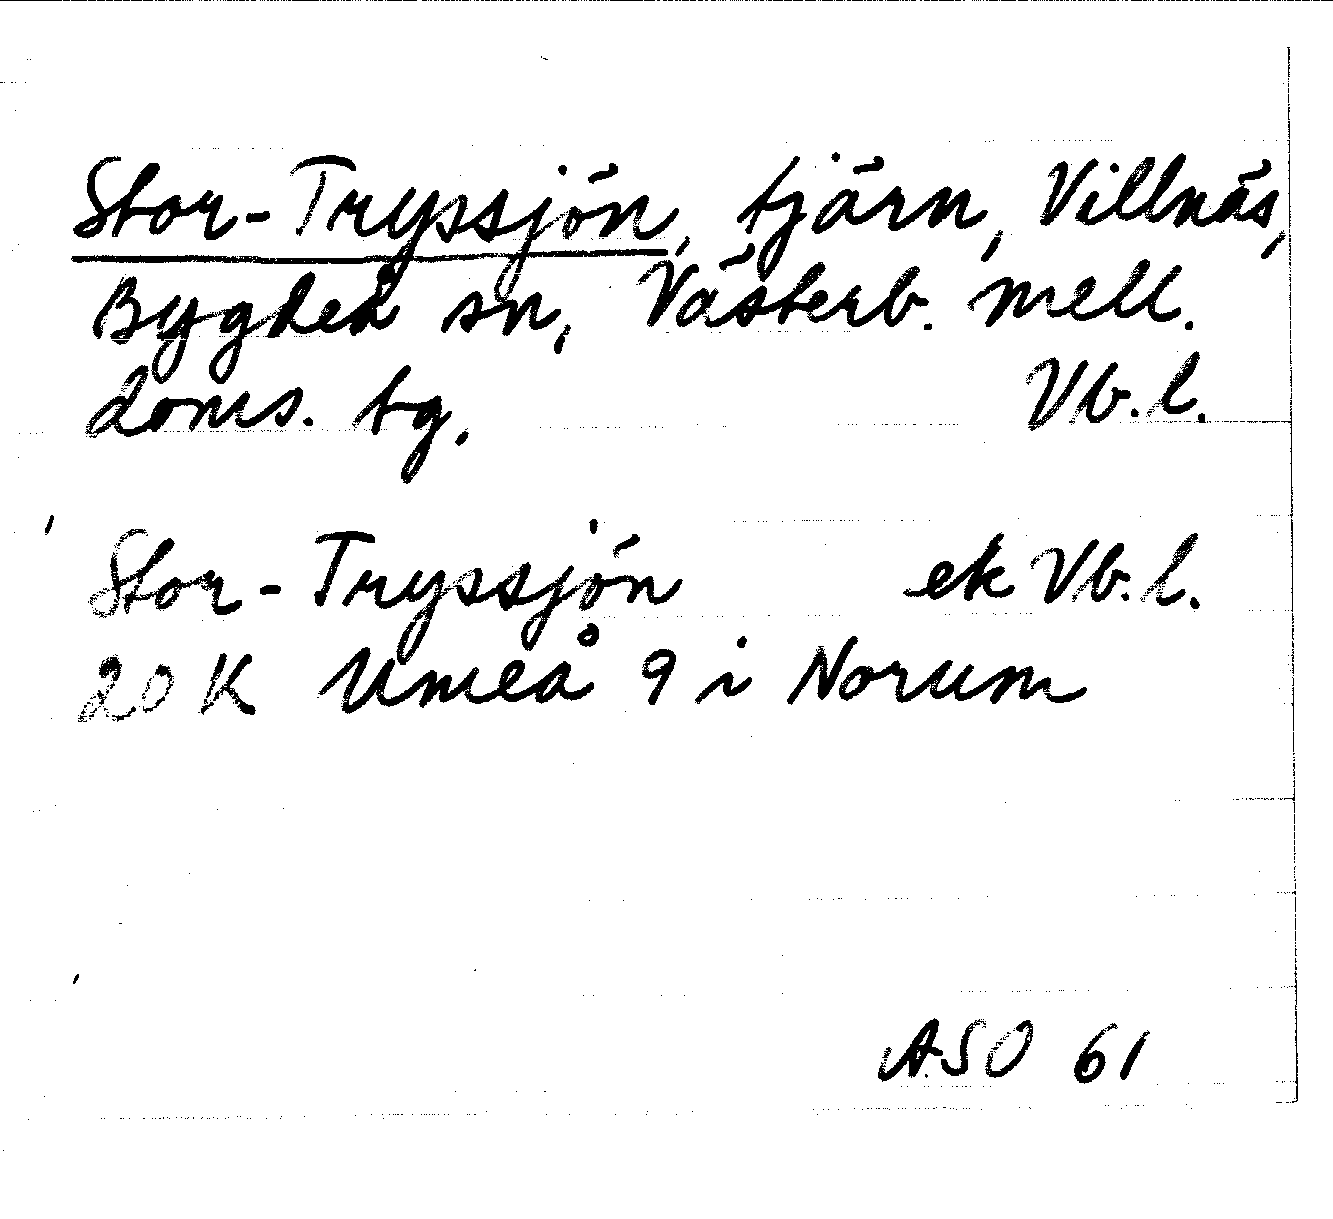 Stor-Tryssjön, tjärn, Villnäs,
Bygdeå sn, Västerb. mell.
doms. tg. Vb.l.
Stor-Tryssjön ek Vb.l.
20 K Umeå 9 i Norum
ASO 61